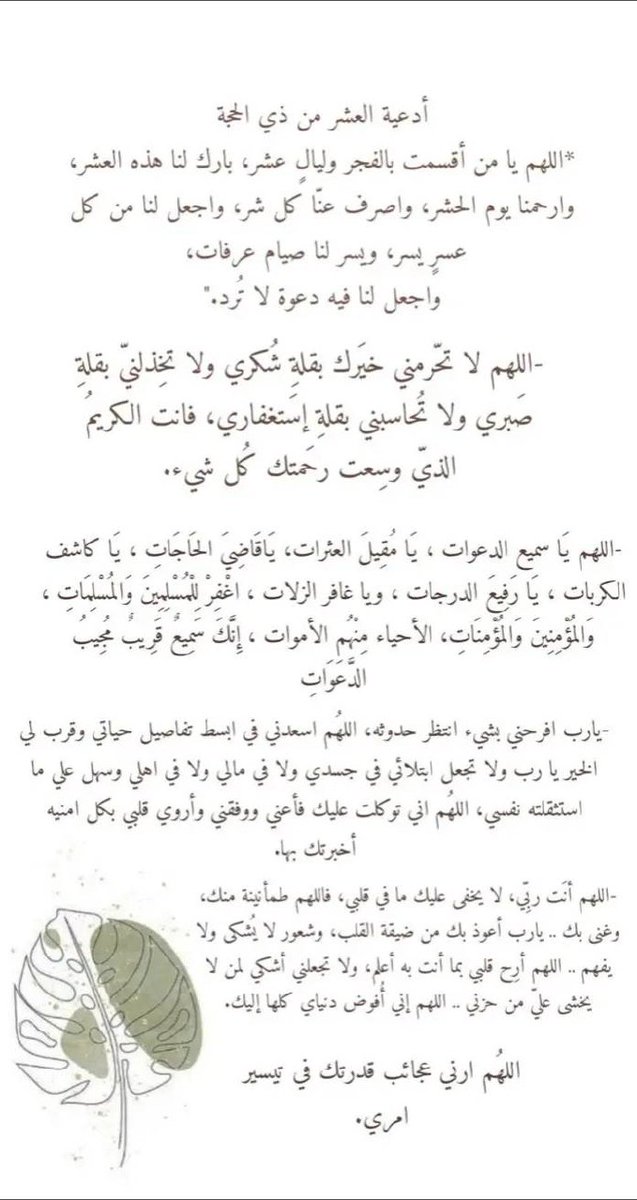 أدعية العشر من ذي الحجة
*اللهم يا من أقسمت بالفجر وليالٍ عشر، بارك لنا هذه العشر،
وارحمنا يوم الحشر، واصرف عنّا كل شر، واجعل لنا من كل
عسرٍ يسر، ويسر لنا صيام عرفات،
واجعل لنا فيه دعوة لا تُرد."
-اللهم لا تحّرمني خيَرك بقلةِ شُكري ولا تخِذلنيّ بقلةِ
صَبري ولا تُحاسبني بقلةِ إستَغفاري، فانت الكريمُ
الذيّ وسِعت رحَمتك كُل شيء.
-اللهم يَا سميع الدعوات ، يَا مُقِيلَ العثرات، يَاقَاضِيَ الحَاجَاتِ ، يَا كاشف
الكربات ، يَا رَفِيعَ الدرجات ، ويا غافر الزلات ، اغْفِرْ لِلْمُسْلِمِينَ وَالمُسْلِمَاتِ ،
وَالمُؤْمِنِينَ وَالمُؤْمِنَاتِ، الأحياء مِنْهُم الأموات ، إِنَّكَ سَمِيعٌ قَرِيبٌ مُجِيبُ
الدَّعَوَاتِ
-يارب افرحني بشيء انتظر حدوثه، اللهُم اسعدني في ابسط تفاصيل حياتي وقرب لي
الخير يا رب ولا تجعل ابتلائي في جسدي ولا في مالي ولا في اهلي وسهل علي ما
استثقلته نفسي، اللهُم اني توكلت عليك فأعني ووفقني وأروي قلبي بكل امنيه
أخبرتك بها.
-اللهم أنَت ربِّي، لا يخفى عليك ما في قلبي، فاللهم طمأنينة منك،
وغنى بك .. يارب أعوذ بك من ضيقة القلب، وشعور لا يُشكى ولا
يفهم .. اللهم أرِح قلبي بما أنت به أعلم، ولا تجعلني أشكي لمن لا
يخشى عليّ من حزني .. اللهم إني أُفوض دنياي كلها إليك.
اللهُم ارني عجائب قدرتك في تيسير
امري.